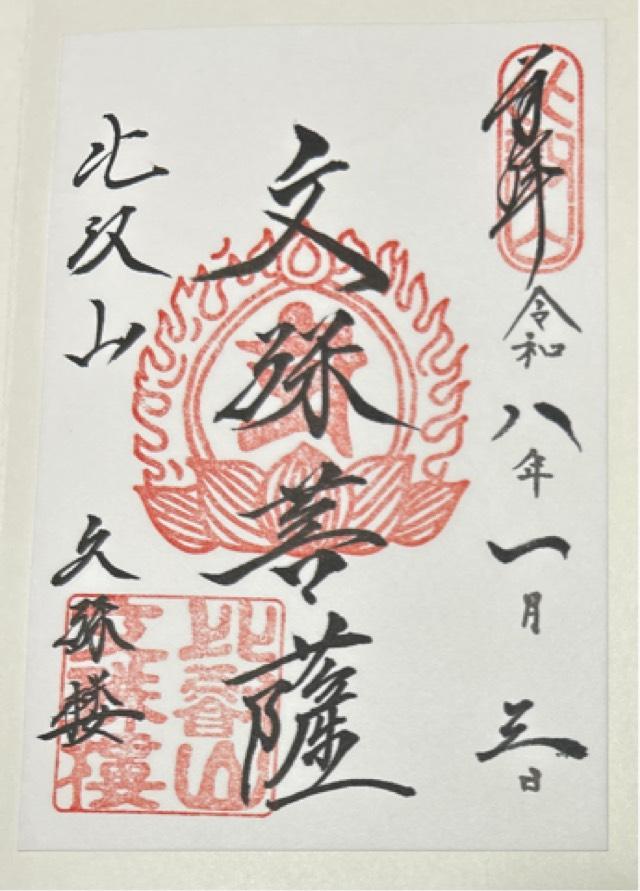 奉拝
令和八年一月三日
文殊菩薩
比叡山
文殊楼
比睿山
文殊樓